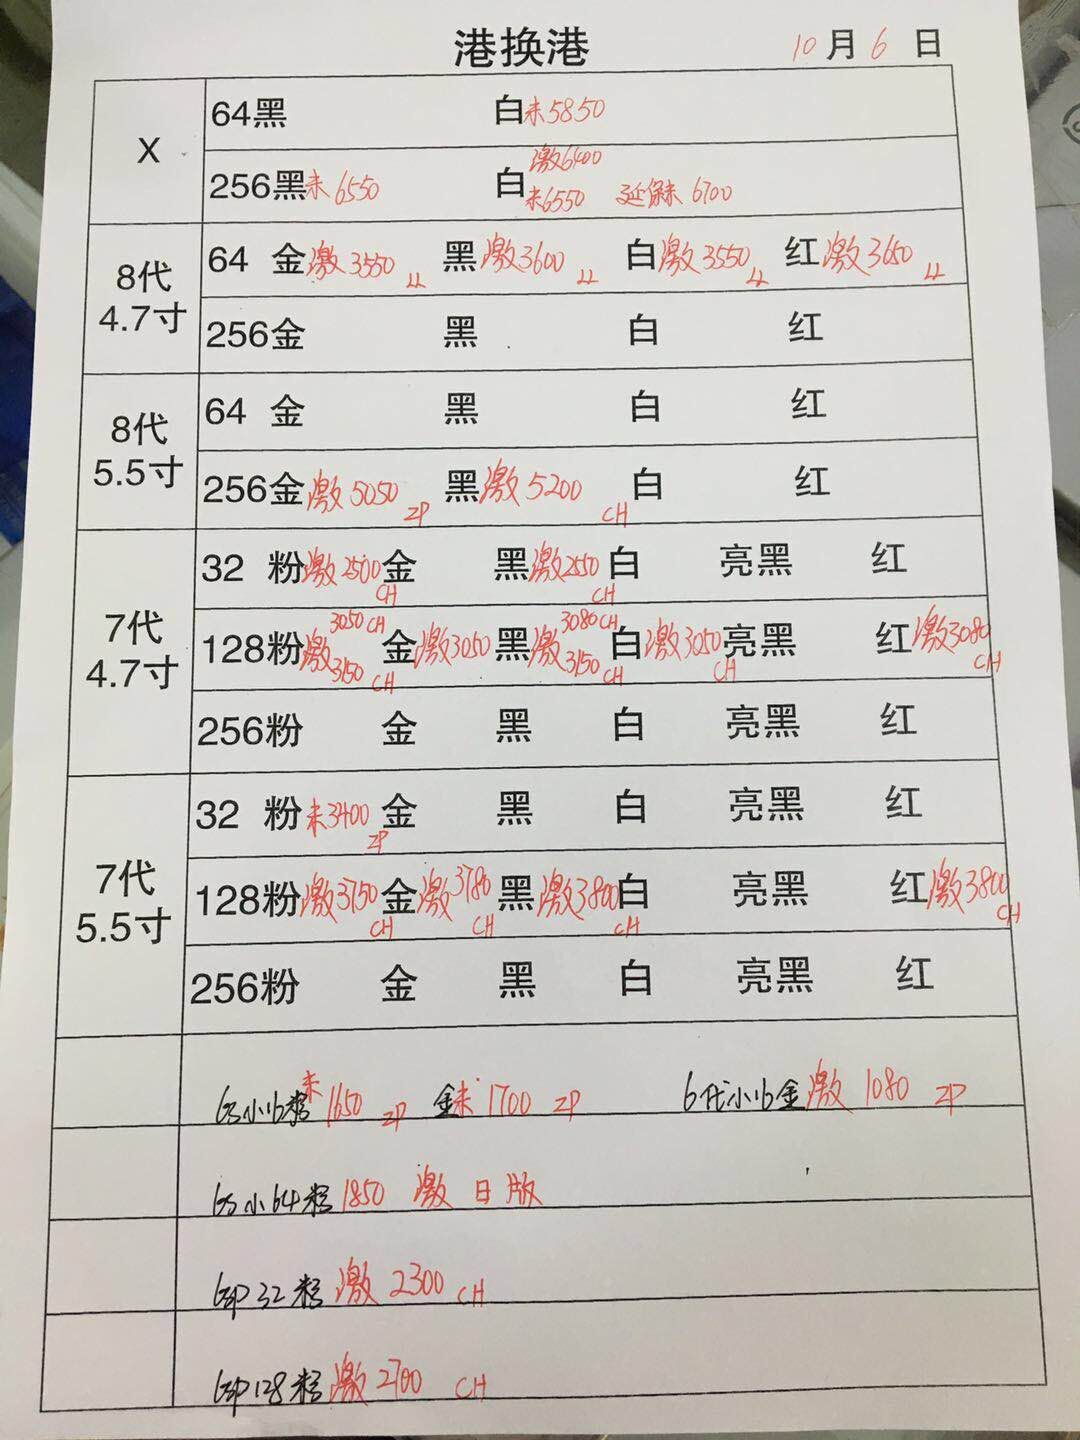 港换港 10月6日
X
64黑 白未5850
激6400
256黑未6550 白未6550 延保未6700
8代
4.7寸
64 金激3550 LL 黑激3600 LL 白激3550 LL 红激3650 LL
256金 黑 白 红
8代
5.5寸
64 金 黑 白 红
256金激5050 ZP 黑激5200 CH 白 红
7代
4.7寸
32 粉激2500 CH 金 黑激2550 CH 白 亮黑 红
3050 CH 3080 CH
128粉激3150 CH 金激3050 黑激3150 CH 白激3050 CH 亮黑 红激3080 CH
256粉 金 黑 白 亮黑 红
7代
5.5寸
32 粉未3400 ZP 金 黑 白 亮黑 红
128粉激3750 CH 金激3780 CH 黑激3800 CH 白 亮黑 红激3800 CH
256粉 金 黑 白 亮黑 红
6S小16粉未1650 ZP 金未1700 ZP 6代小16金激1080 ZP
6S小64粉1850 激 日版
6SP32粉激2300 CH
6SP128粉激2700 CH